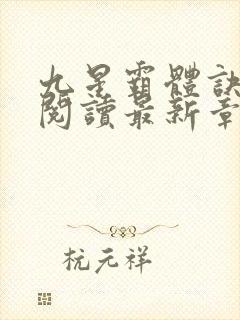 九星霸體訣
閱讀最新章
杭元祥